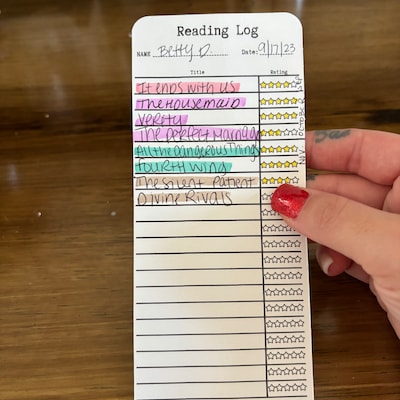 Reading Log
NAME Betty D. Date: 9/17/23
Title Rating
It ends with us
The Housemaid
Verity
The Perfect Marriage
All the Dangerous Things
Fourth Wing
The Silent Patient
Divine Rivals
OCTOBER
NOV